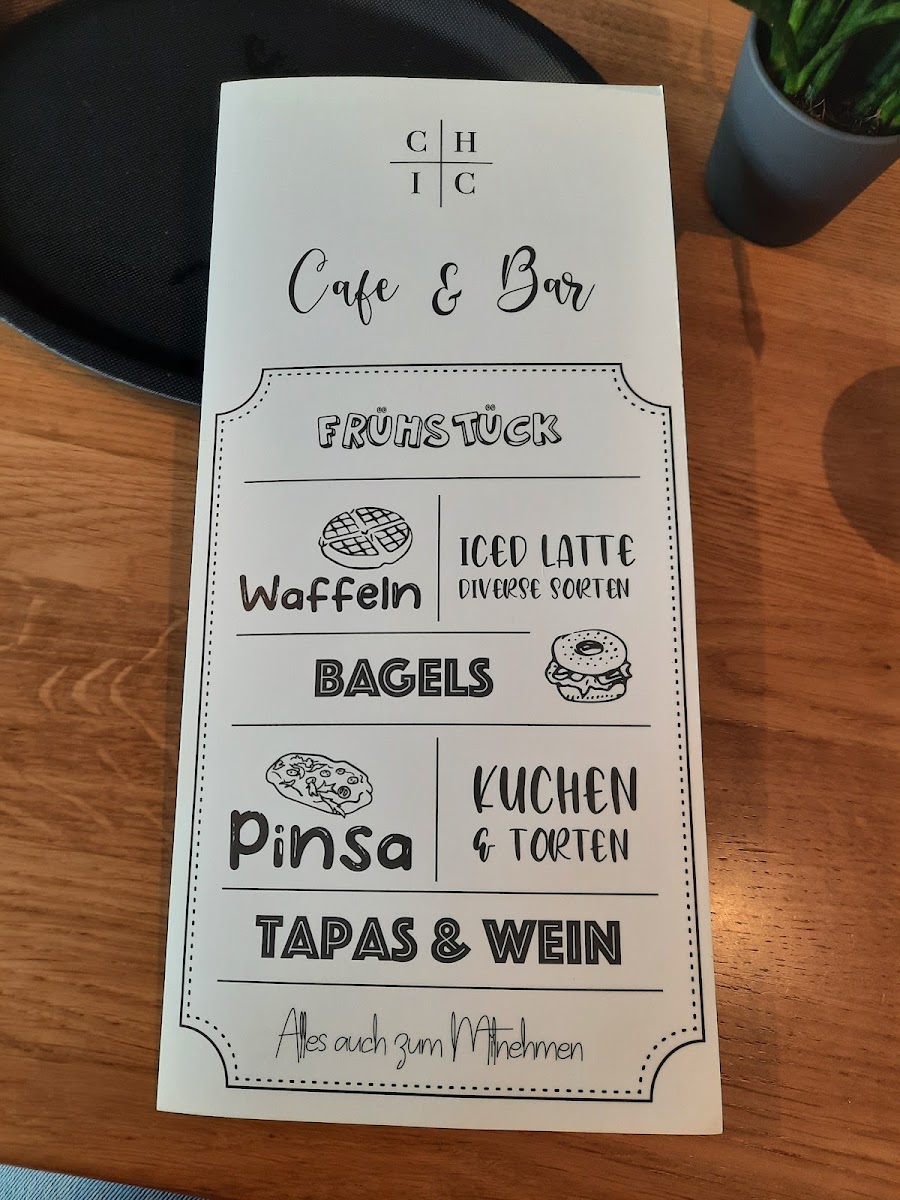 C H
I C
Cafe & Bar
FRÜHSTÜCK
Waffeln
ICED LATTE
DIVERSE SORTEN
BAGELS
Pinsa
KUCHEN
& TORTEN
TAPAS & WEIN
Alles auch zum Mitnehmen